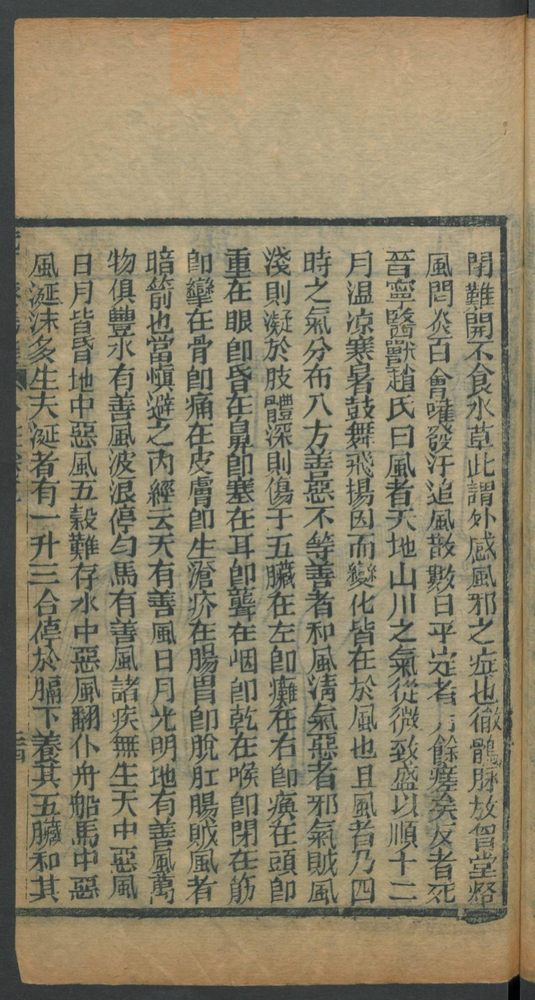 閉難開不食水草此謂外感風邪之症也徹鶻脉放智堂烙
風門炎百會嘆發汗追風散數日平定者方餘瘥矣反者死
晉寧醫獸趙氏曰風者天地山川之氣從微致盛以順十二
月温凉寒暑鼓舞飛揚因而變化皆在於風也且風者乃四
時之氣分布八方善惡不等善者和風清氣惡者邪氣賊風
淺則凝於肢體深則傷于五臟在左卽癱在右卽瘓在頭卽
重在眼卽昏在鼻卽塞在耳卽聾在咽卽乾在喉卽閉在筋
卽攣在骨卽痛在皮膚卽生瘡疥在腸胃卽脫肛腸賊風者
暗箭也當愼避之內經云天有善風日月光明地有善風萬
物俱豐水有善風波浪停勻馬有善風諸疾無生天中惡風
日月皆昏地中惡風五穀難存水中惡風翻仆舟船馬中惡
風涎沫多生夫涎者有一升三合停於膈下養其五臟和其